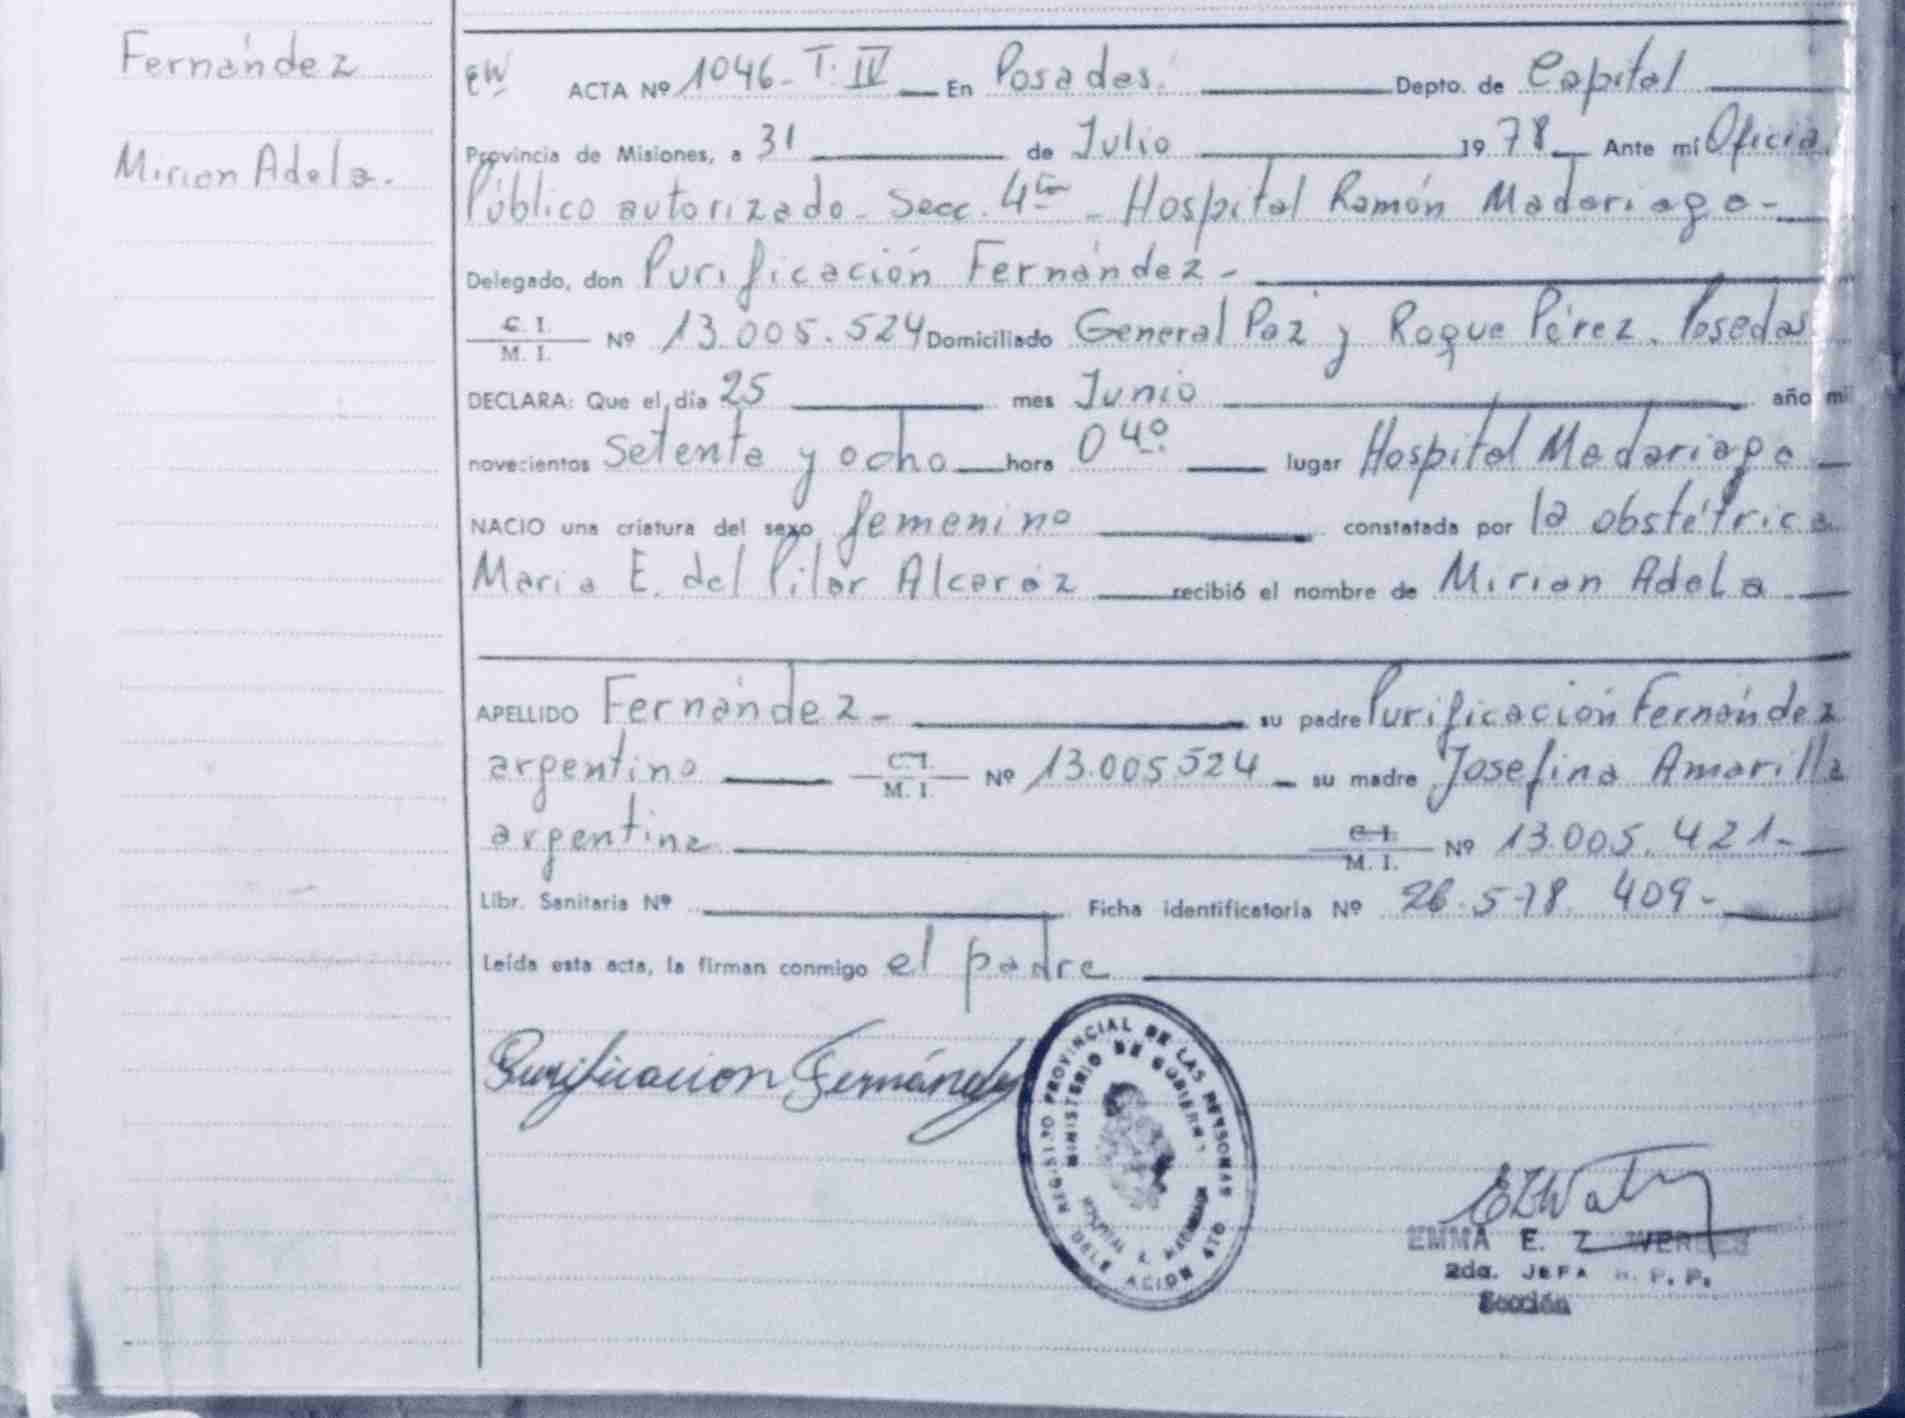 Fernández
Mirian Adela.
EW ACTA Nº 1046 - T. IV En Posadas. Depto. de Capital
Provincia de Misiones, a 31 de Julio 19 78 Ante mí Oficial
Público autorizado - Secc. 4ta - Hospital Ramón Madariaga -
Delegado, don Purificación Fernández -
C. I. / M. I. Nº 13.005.524 Domiciliado General Paz y Roque Pérez. Posadas
DECLARA: Que el día 25 mes Junio año mil
novecientos setenta y ocho hora 04º lugar Hospital Madariaga
NACIO una criatura del sexo femenino constatada por la obstétrica
María E. del Pilar Alcaráz recibió el nombre de Mirian Adela
APELLIDO Fernández - su padre Purificación Fernández
argentino C. I. / M. I. Nº 13.005.524 su madre Josefina Amarilla
argentina C. I. / M. I. Nº 13.005.421 -
Libr. Sanitaria Nº Ficha identificatoria Nº 26.578.409 -
Leída esta acta, la firman conmigo el padre
Purificacion Fernández
REGISTRO PROVINCIAL DE LAS PERSONAS
MINISTERIO DE GOBIERNO
HOSPITAL R. MADARIAGA
DELEGACION 4TO
EMMA E. Z.
2da. JEFA R. P. P.
Sección